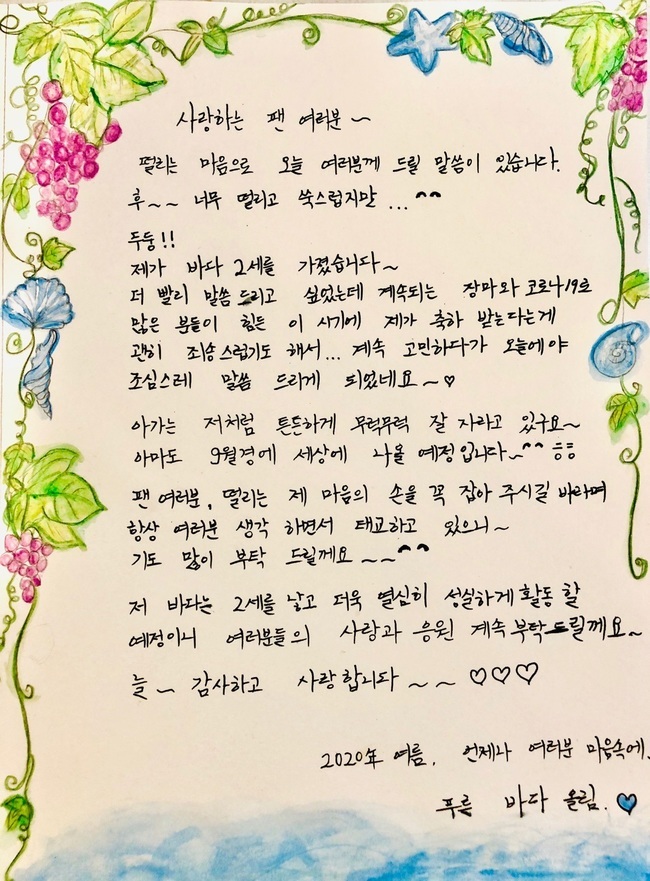 사랑하는 팬 여러분~
떨리는 마음으로 오늘 여러분께 드릴 말씀이 있습니다.
후~~ 너무 떨리고 쑥스럽지만 ...^^
두둥!!
제가 바다 2세를 가졌습니다~
더 빨리 말씀 드리고 싶었는데 계속되는 장마와 코로나19로
많은 분들이 힘든 이 시기에 제가 축하 받는다는게
괜히 죄송스럽기도 해서... 계속 고민하다가 오늘에야
조심스레 말씀 드리게 되었네요~♡
아가는 저처럼 튼튼하게 무럭무럭 잘 자라고 있구요~
아마도 9월경에 세상에 나올 예정입니다~^^ ㅎㅎ
팬 여러분, 떨리는 제 마음의 손을 꼭 잡아 주시길 바라며
항상 여러분 생각 하면서 태교하고 있으니~
기도 많이 부탁 드릴께요~~^^
저 바다는 2세를 낳고 더욱 열심히 성실하게 활동 할
예정이니 여러분들의 사랑과 응원 계속 부탁드릴께요~
늘~ 감사하고 사랑합니다~~♡♡♡
2020年 여름, 언제나 여러분 마음속에.
푸른 바다 올림.♡